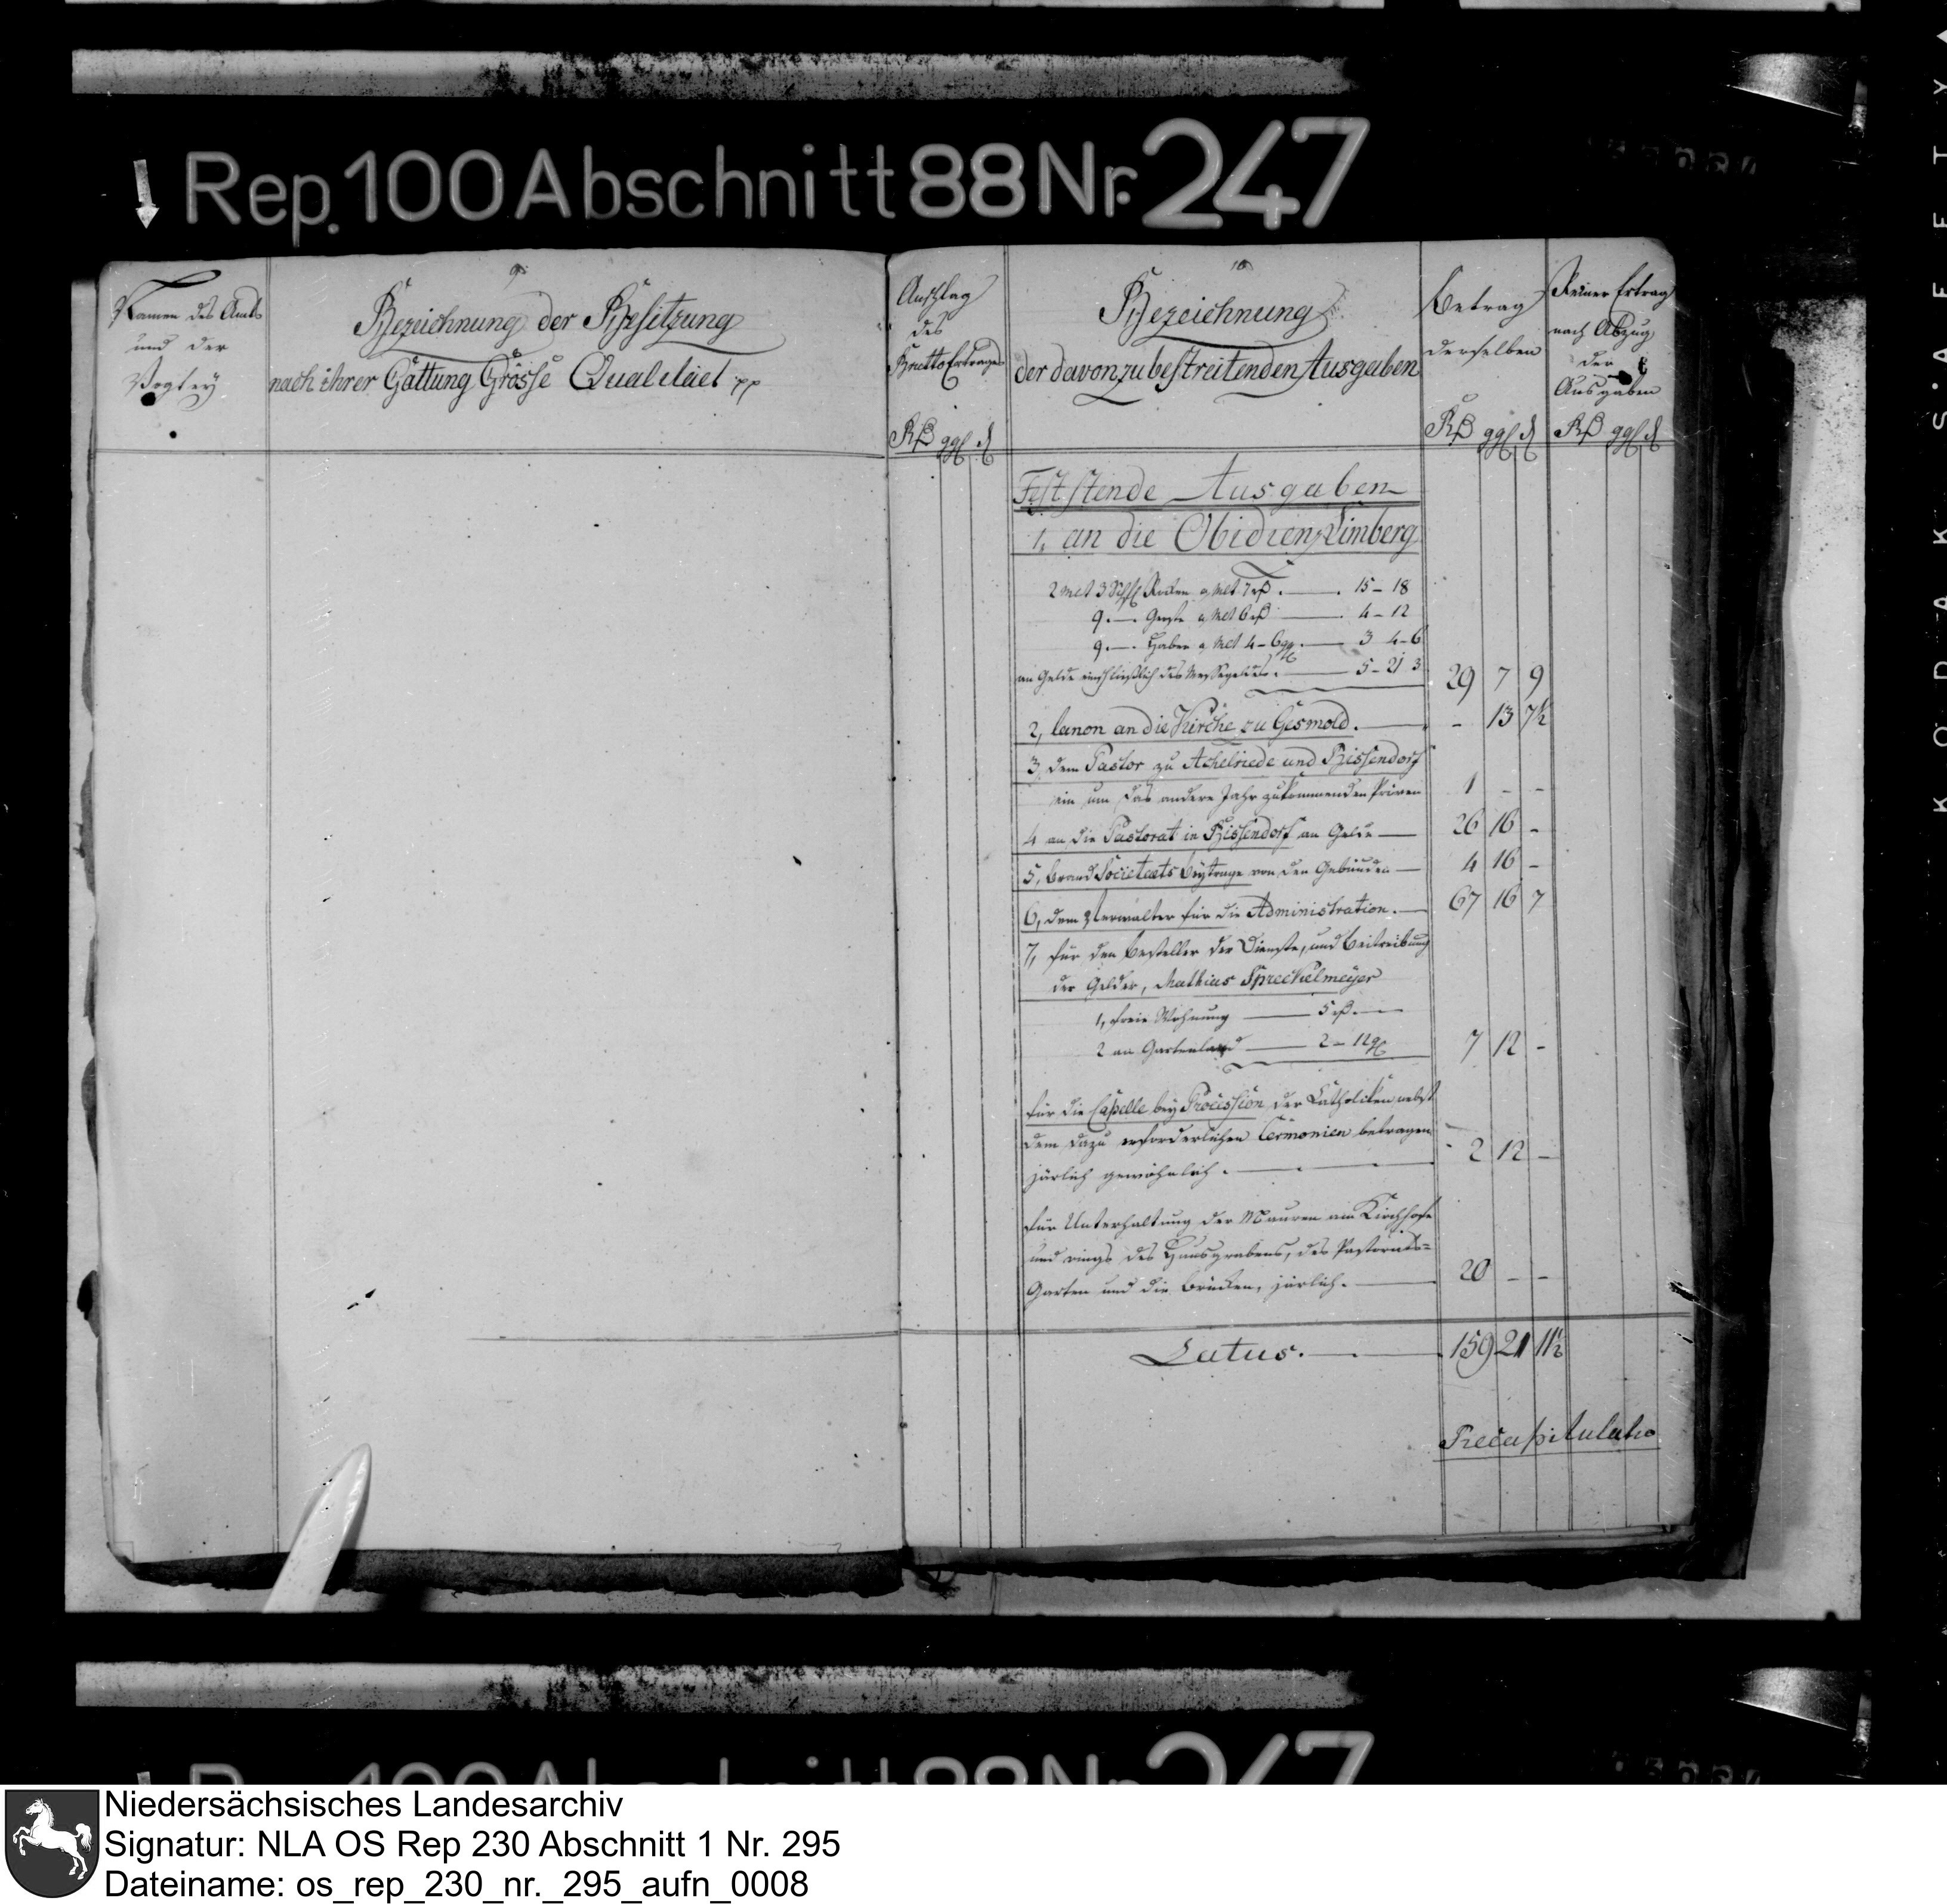 Rep. 100 Abschnitt 88 Nr. 247
9.
Namen des Amts
und der
Vogtey
Bezeichnung der Besitzung
nach ihrer Gattung Grösse Qualitaet pp
10
Anschlag
des
Brutto Ertrages
Rß ggl d
Bezeichnung
der davon zu bestreitenden Ausgaben
Betrag
derselben
Rß ggl d
Reiner Ertrag
nach Abzug
der
Ausgaben
Rß ggl d
Feststende Ausgaben
1, an die Obidienz Vimberg
2 Mlt 3 Schfl Rocken a Mlt 7 rß . — 15 – 18
9 . — . Gerste a Mlt 6 rß — 4 – 12
9 . — . Haber a Mlt 4 – 6 ggl . — 3 4 – 6
an Gelde einschließlich des Messegeldes . — 5 – 21 3 29 7 9
2, Canon an die Kirche zu Gesmold . — – 13 7½
3, dem Pastor zu Achelriede und Bissendorf
ein um das andere Jahr zukommenden 1 – –
4 an die Pastorat in Bissendorf an Gelde — 26 16 –
5, Brand Societaets Beytrage von den Gebäuden — 4 16 –
6, dem Verwalter für die Administration . — 67 16 7
7, für den Besteller der Dienste, und Beitreibung
der Gelder, Mathias Spreckelmeyer
1, freie Wohnung — 5 rß . —
2 an Gartenland — 2 – 12 ggl 7 12 –
für die Capelle bey Procession der Catholiken nebst
dem dazu erforderlichen Cermonien betragen
järlich gewöhnlich . — 2 12 –
für Unterhaltung der Mauren am Kirchhofe
und rings des Hausgrabens, des Pastorats=
Garten und die Brücken, järlich . — 20 – –
Latus . — 159 21 11½
Recapitulatio
KODAK SAFETY
Niedersächsisches Landesarchiv
Signatur: NLA OS Rep 230 Abschnitt 1 Nr. 295
Dateiname: os_rep_230_nr._295_aufn_0008